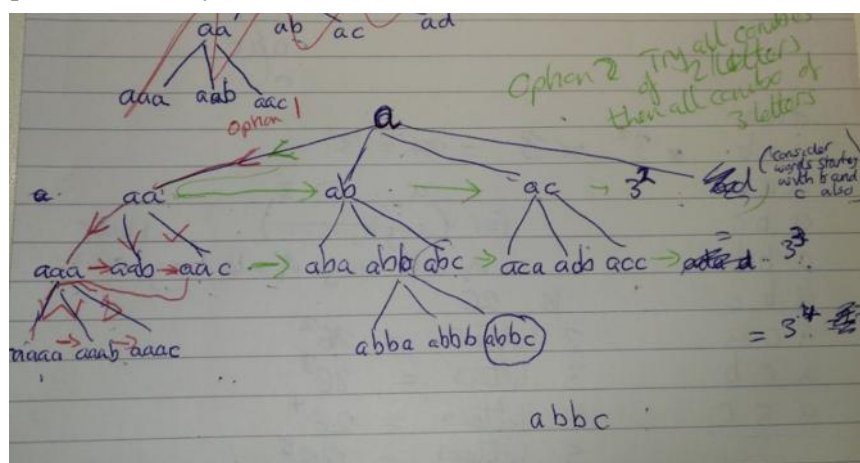 aa ab ac ad
aaa aab aac
Option 1
Option 2 Try all combos
of 2 letters
then all combo of
3 letters
a
a aa ab ac 3²
(consider
words starting
with b and
c also)
aaa aab aac aba abb abc aca acb acc = 3³
aaaa aaab aaac abba abbb abbc = 3⁴
abbc